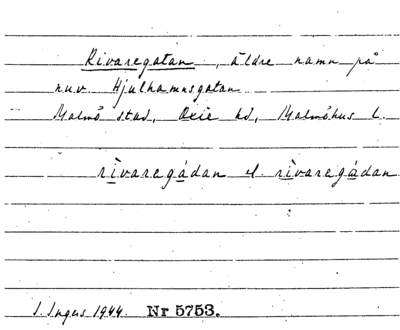 Rivaregatan, äldre namn på
nuv. Hjulhamnsgatan
Malmö stad, Oxie hd, Malmöhus l.
rìvaregádan el. rìvaregádan
S. Ingers 1944. Nr 5753.